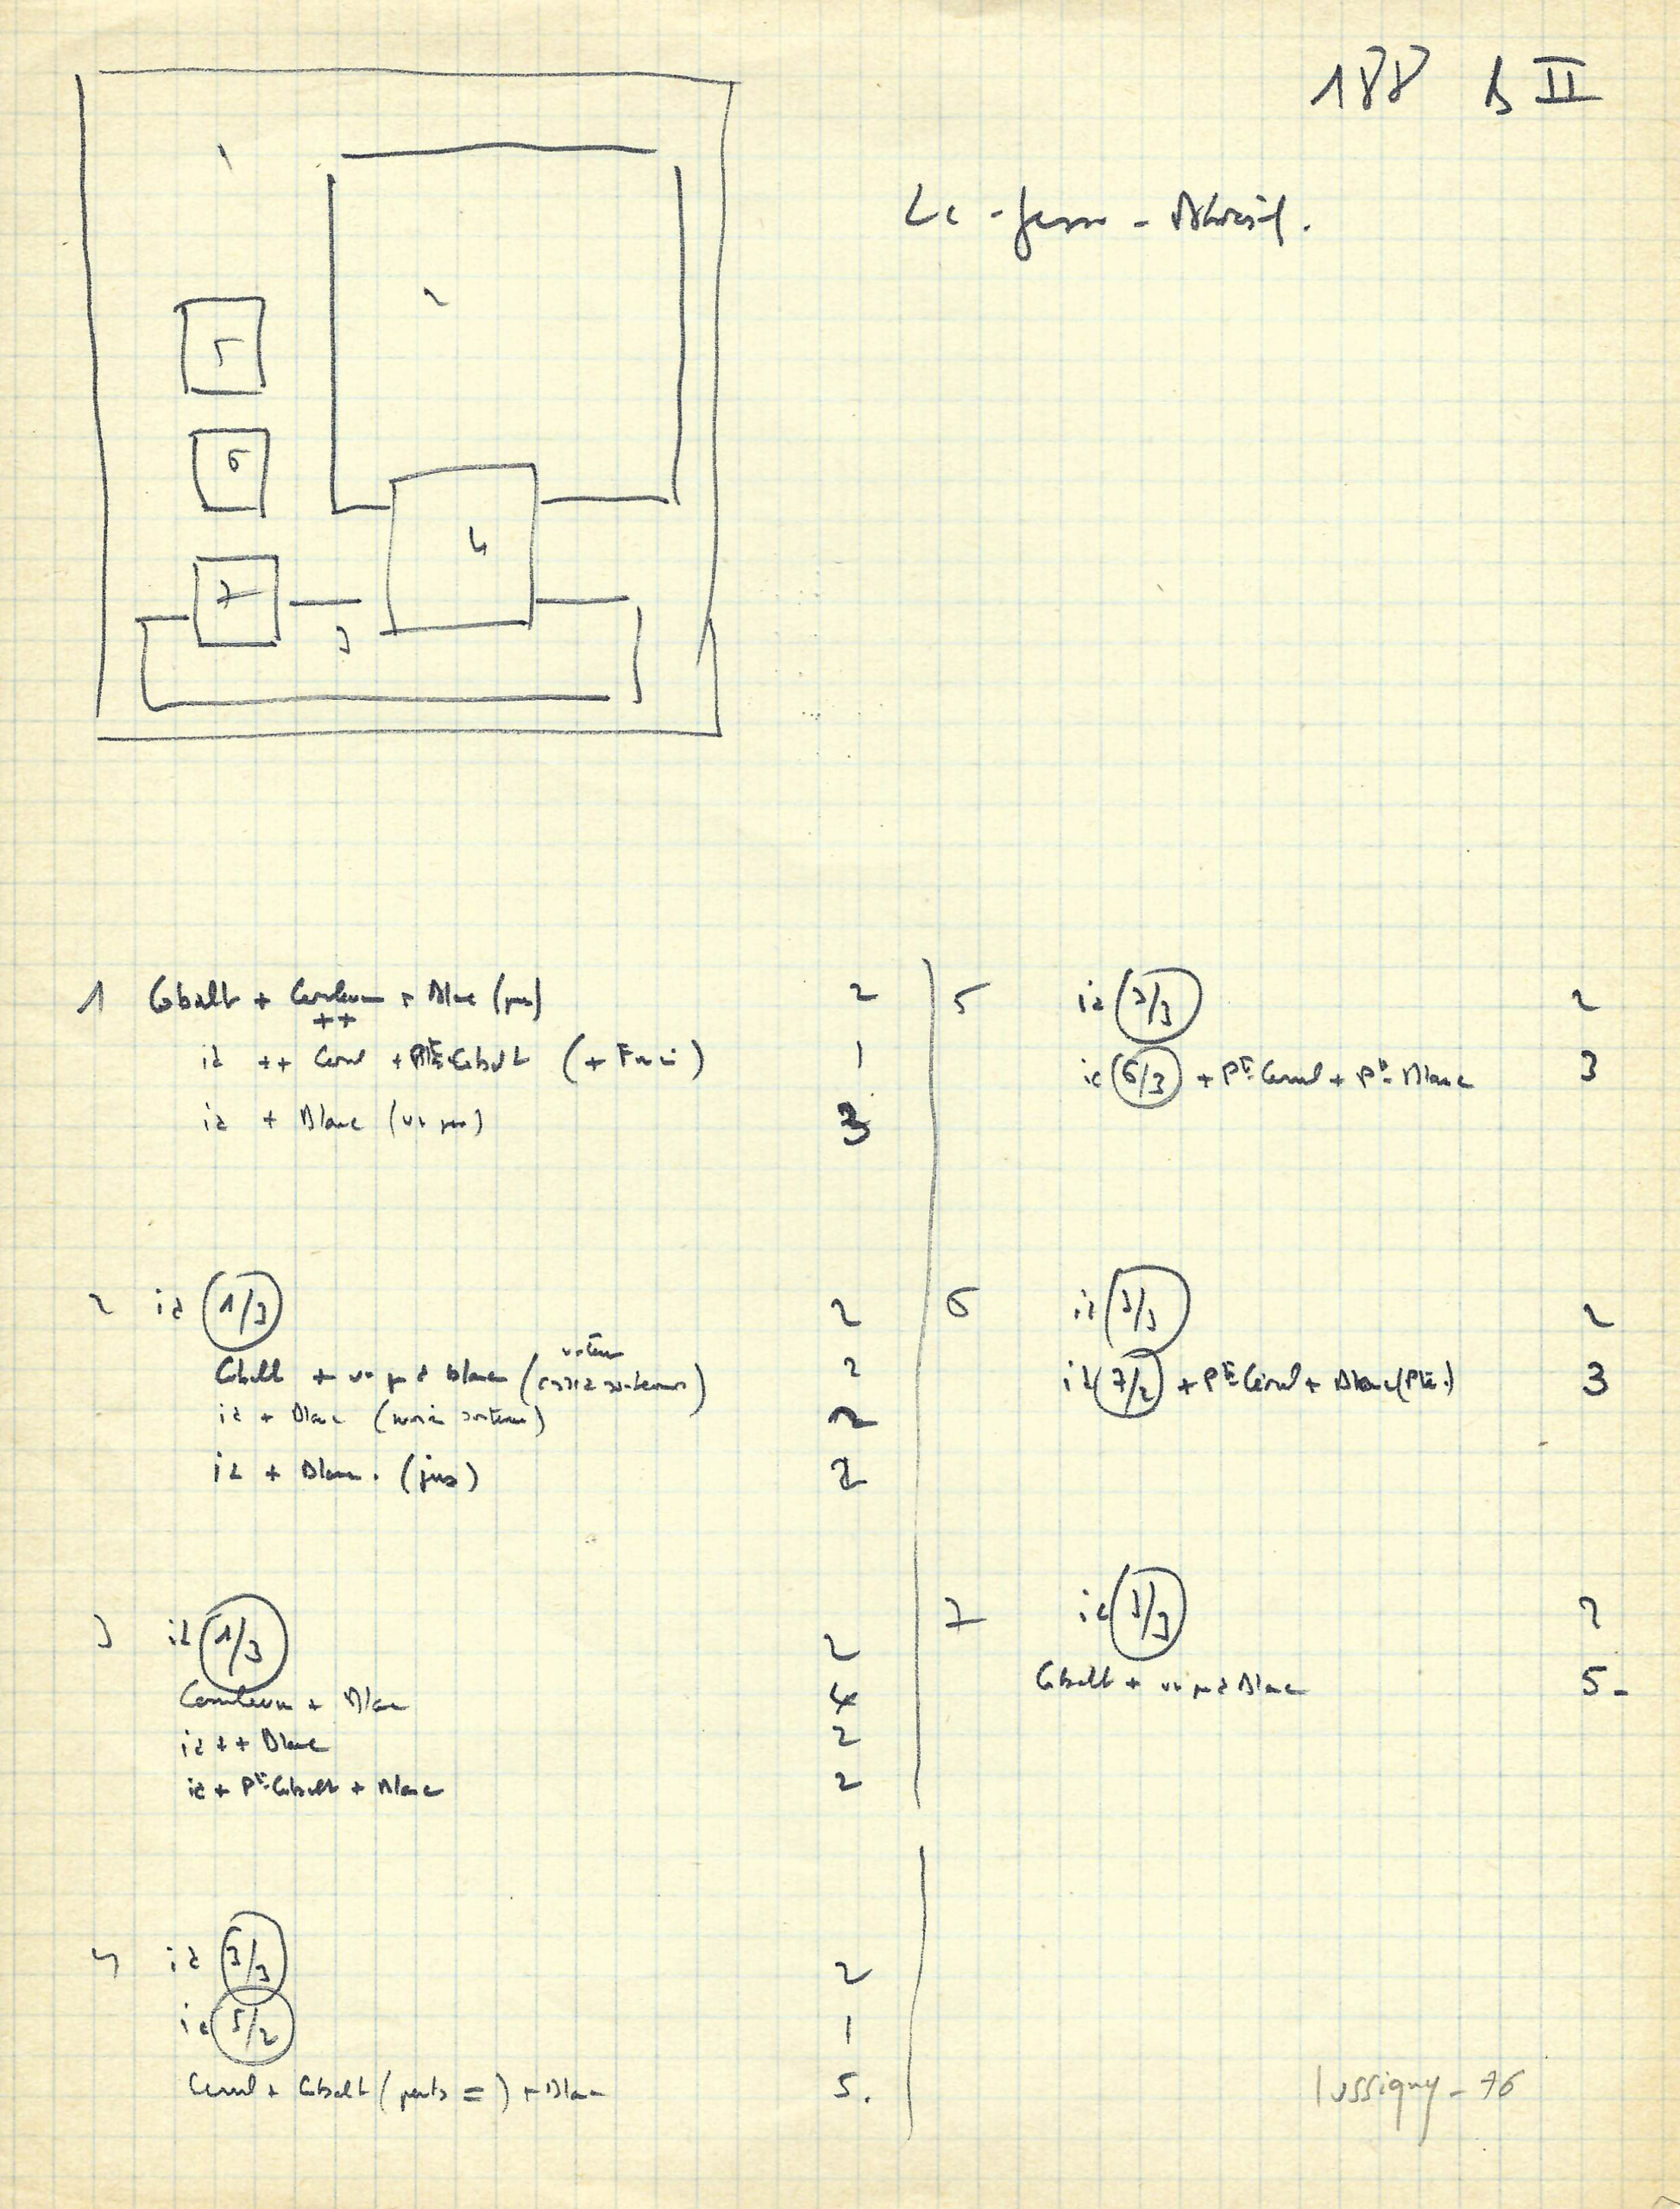 188 B II
1
2
5
6
4
7
3
1 Cobalt + Ceruleum + Blanc (jus) 2
++
id ++ Cerul + Pte Cobalt 1
id + Blanc (un peu) 3
2 id 1/3 2
Cobalt + un peu de blanc 2
id + Blanc 2
id + Blanc. (jus) 2
3 id 1/3 2
Ceruleum + Blanc 4
id ++ Blanc 2
id + Pt Cobalt + Blanc 2
4 id 3/3 2
id 5/2 1
Cerul + Cobalt (parts =) + Blanc 5.
5 id 3/3 2
id 6/3 + Pt Cerul + Pt Blanc 3
6 id 3/3 2
id 7/2 + Pt Cerul + Blanc (Pte.) 3
7 id 3/3 2
Cobalt + un peu de Blanc 5-
lussigny - 76